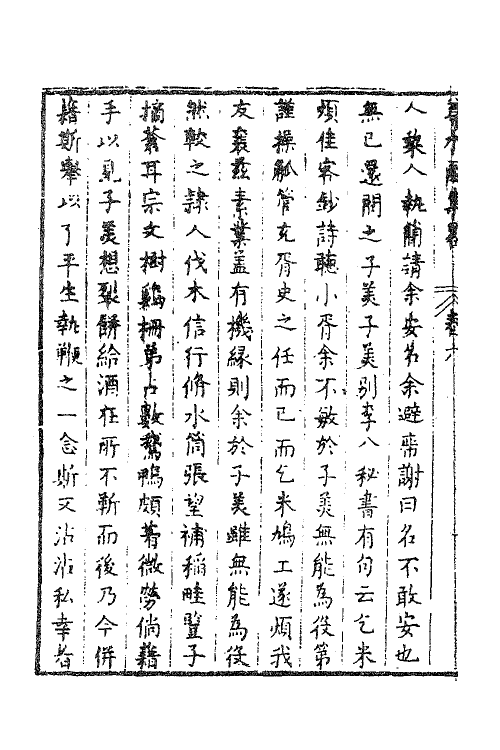 卷六
人黎人執簡請余妄名余避席謝曰名不敢安也
無已還問之子美子美別李八秘書有句云乞米
煩佳客鈔詩聽小胥余不敏於子美無能為役第
謹操觚管充胥史之任而已而乞米鳩工遂煩我
友襄茲素業盖有機緣則余於子美雖無能為役
然較之隷人伐木信行脩水筒張望補稻畦豎子
摘蒼耳宗文樹鷄柵第占數鵞鴨頗著微勞倘藉
手以見子美想裂餅給酒在所不靳而後乃今併
籍斯舉以了平生執鞭之一念斯又沾沾私幸者